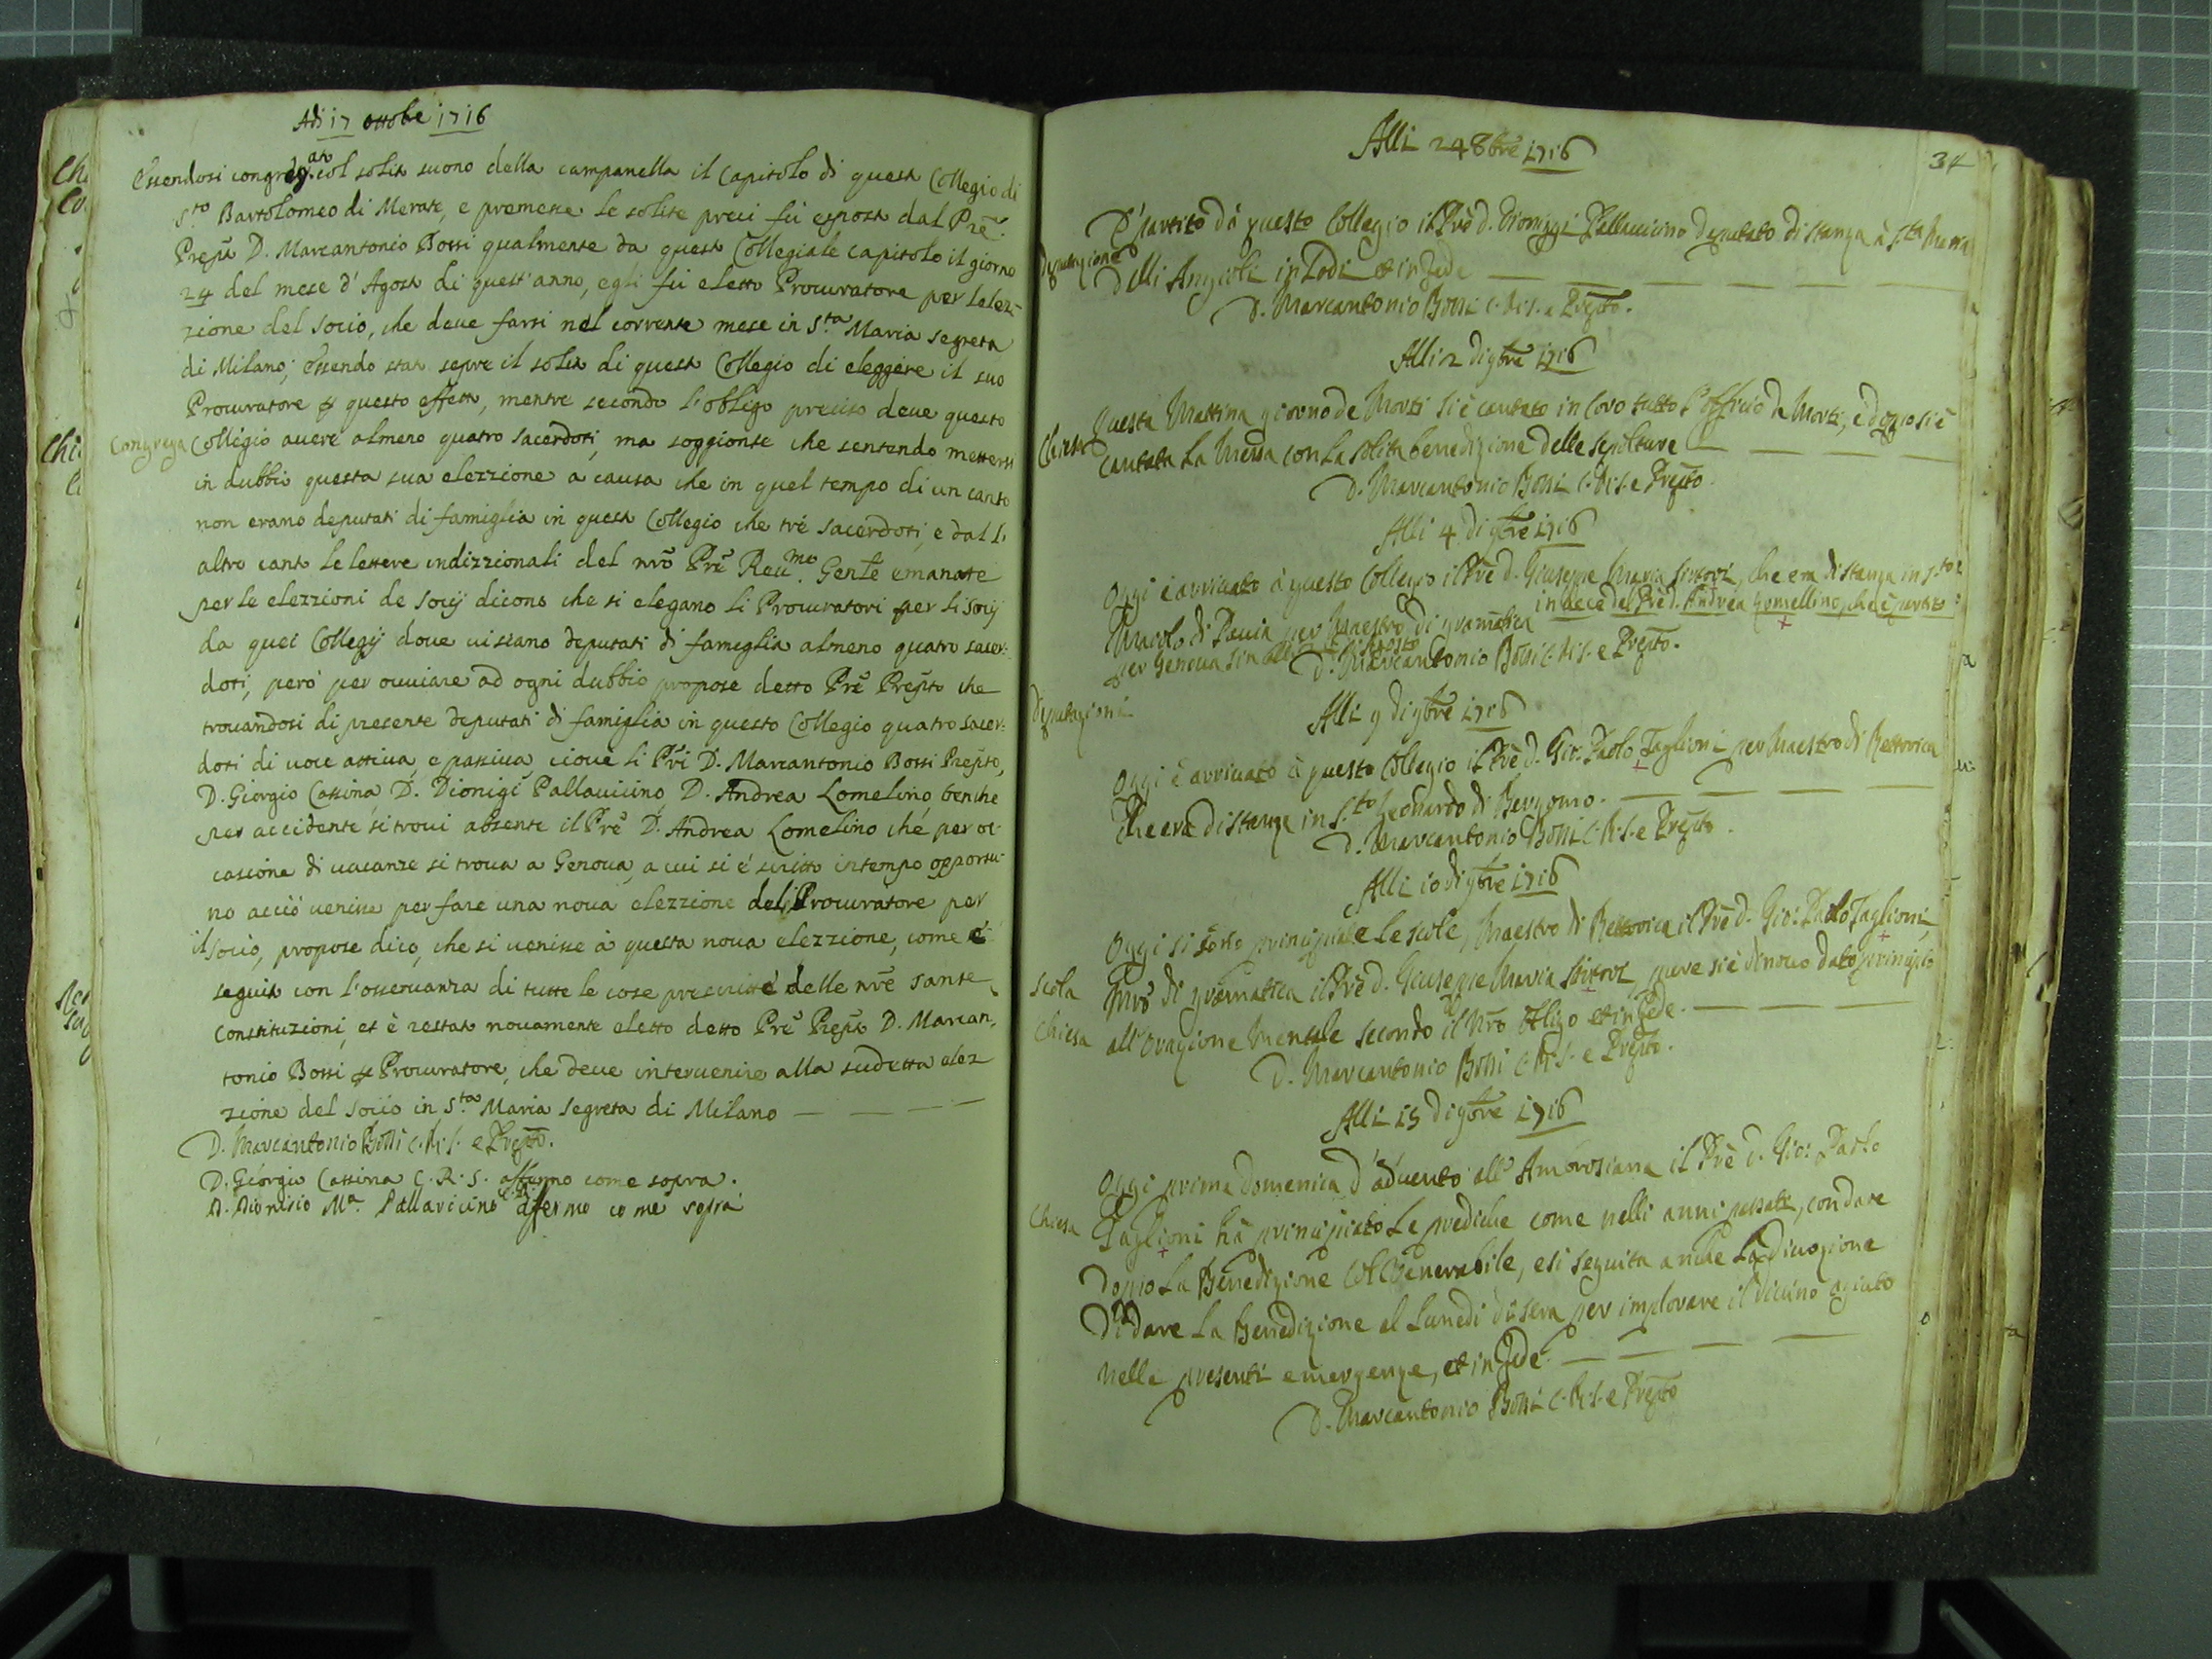 Adi 17 ottobre 1716
Essendosi congregato col solito suono della campanella il Capitolo di questo Collegio di
S.to Bartolomeo di Merate, e premesse le solite preci fù esposto dal Prē
Prepto D. Marcantonio Bossi qualmente da questo Collegiale capitolo il giorno
24 del mese d'Agosto di quest'anno, egli fù eletto Procuratore per l'elez-
zione del socio, che deve farsi nel corrente mese in S.ta Maria segreta
di Milano; Essendo stato sepre il solito di questo Collegio di eleggere il suo
Procuratore p questo effetto, mentre secondo l'obligo preciso deve questo
Congrega
Collegio avere almeno quatro sacerdoti, ma soggionse che sentendo mettersi
in dubbio questa sua elezzione a causa che in quel tempo di un canto
non erano deputati di famiglia in questo Collegio che trè sacerdoti, e dall'
altro canto le lettere indizzionali del nrō Prē Reu.mo Genle emanatte
per le elezzioni de socÿ dicono che si elegano li Procuratori per li socÿ
da quei Collegÿ doue ui siano deputati di famiglia almeno quatro sacer:
doti, però per ouuiare ad ogni dubbio propose detto Prē Prepto che
trouandosi di presente deputati di famiglia in questo Collegio quatro sacer:
doti di uoce attiua, e passiua cioué li Prī D. Marcantonio Bossi Prepto,
D. Giorgio Cassina, D. Dionigi Pallauicino, D. Andrea Lomelino, benche
per accidente si troui absente il Prē D. Andrea Lomelino ché per oc-
casione di uacanze si troua a Genoua, a cui si é scritto in tempo opportu-
no acciò uenisse per fare una noua elezzione del Procuratore per
il socio, propose dico, che si uenisse à questa noua elezzione, come é
seguito con l'osseruanza di tutte le cose prescritte delle nrē sante
Constituzioni, et è restato nouamente eletto detto Prē Prepto D. Marcan,
tonio Bossi p Procuratore, che deue interuenire alla sudetta elez
zione del socio in S.ta Maria segreta di Milano
D. Marcantonio Bossi C.R.S. e Prepto.
D. Giorgio Cassina C.R.S. affermo come sopra.
D. Dionisio Ma. Pallavicino C.R.S. affermo come soprà
34
Alli 24 8bre 1716
È partito dà questo Collegio il Prē d. Dionigi Pallauicino deputato di stanza à S.ta Maria
Deputazione
Delli Angioli in Lodi et in fede
D. Marcantonio Bossi C.R.S. e Prepto.
Alli 2 di 9bre 1716
Questa Mattina giorno de Morti si è cantato in Coro tutto l'officio de Morti, e doppo si è
Chiesa
cantata La Messa con La solita benedizione delle sepolture
D. Marcantonio Bossi C.R.S. e Prepto.
Alli 4 di 9bre 1716
Oggi è arriuato à questo Collegio il Prē d. Giuseppe Maria Sirtori, che era di stanza in S.to
in uece del Prē d. Andrea Lomellino, che è partito
Maiolo di Pauia per Maestro di gramatica
per Genoua sin
D. Marcantonio Bossi C.R.S. e Prepto.
Deputazioni
Alli 9 di 9bre 1716
Oggi è arriuato à questo Collegio il Prē d. Gio: Paolo Taglioni per Maestro di Rettorica
che era di stanza in S.to Leonardo di Bergomo.
D. Marcantonio Bossi C.R.S. e Prepto.
Alli 10 di 9bre 1716
Oggi si sono principiate Le scole, Maestro di Rettorica il Prē d. Gio: Paolo Taglioni,
Scola
Mrō di gramatica il Prē d. Giuseppe Maria Sirtori, pure si è dinouo dato principio
Chiesa
all'Orazione Mentale secondo il Nrō obligo et in fede.
D. Marcantonio Bossi C.R.S. e Prepto.
Alli 15 di 9bre 1716
Oggi prima domenica d'aduento all'Ambrosiana il Prē d. Gio: Paolo
Chiesa
Taglioni hà principiato Le prediche come nelli anni passati, con dare
doppo La Benedizione Col Venerabile, e si seguita anche La diuozione
Di dare La Benedizione al Lunedi di sera per implorare il diuino agiuto
nelle presenti emergenze, et in fede.
D. Marcantonio Bossi C.R.S. e Prepto